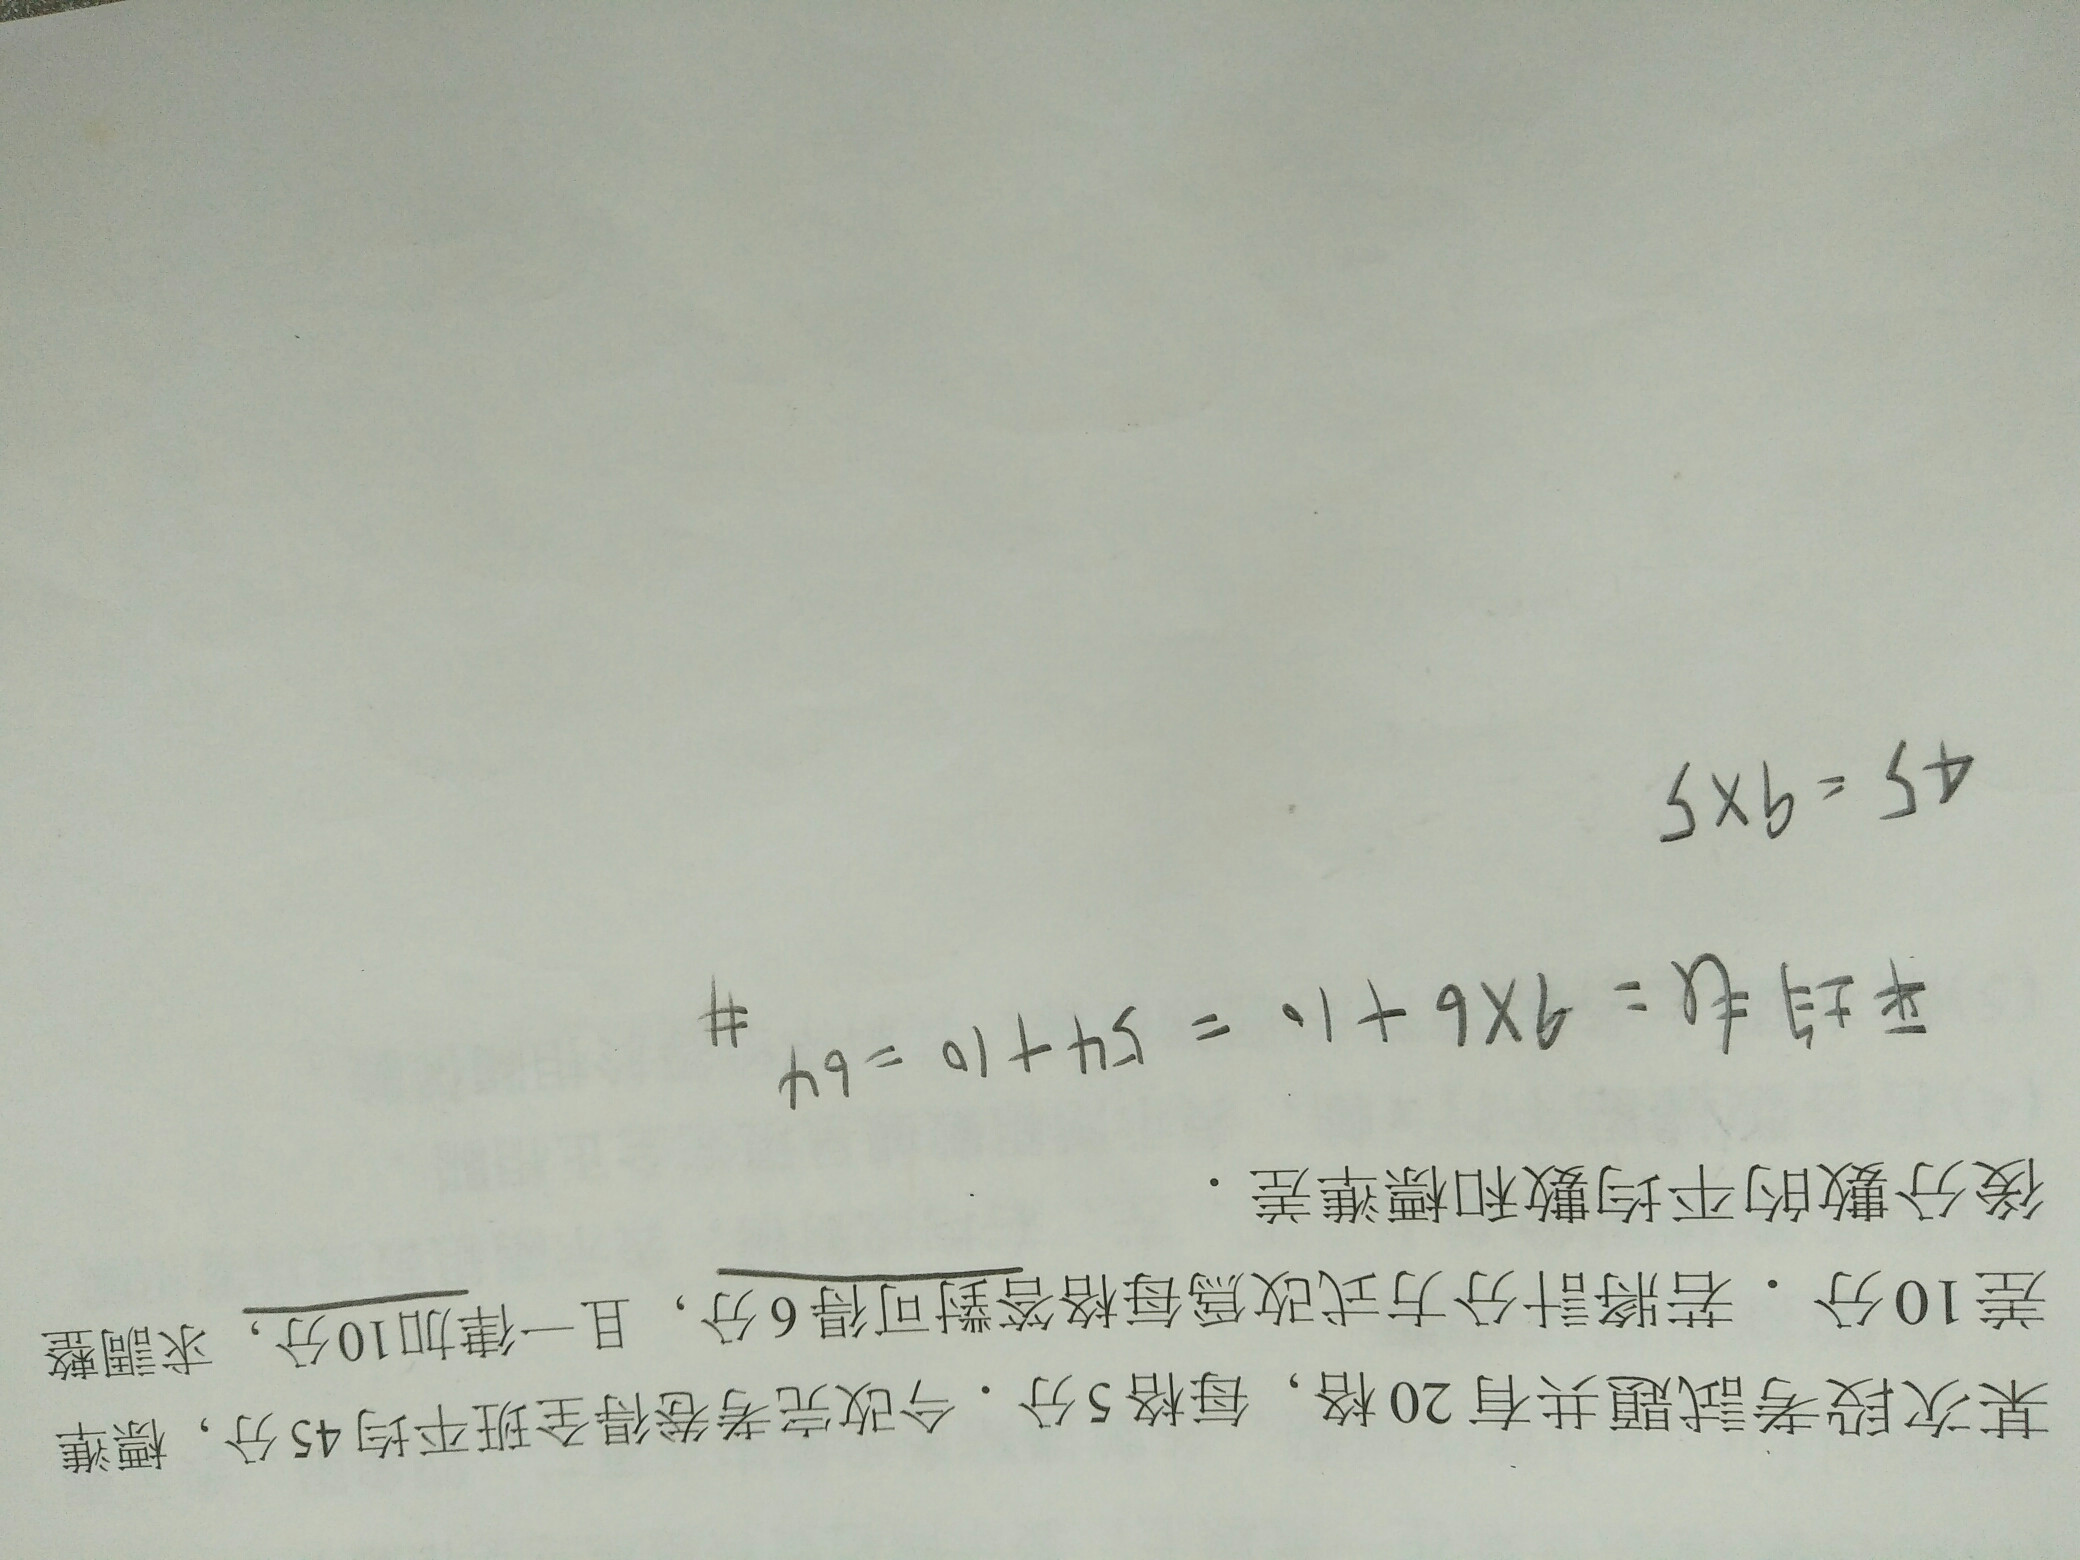 某次段考試題共有20格，每格5分．今改完考卷得全班平均45分，標準
差10分．若將計分方式改爲每格答對可得6分，且一律加10分，求調整
後分數的平均數和標準差．
平均數 = 9×6+10 = 54+10 = 64 #
45 = 9×5